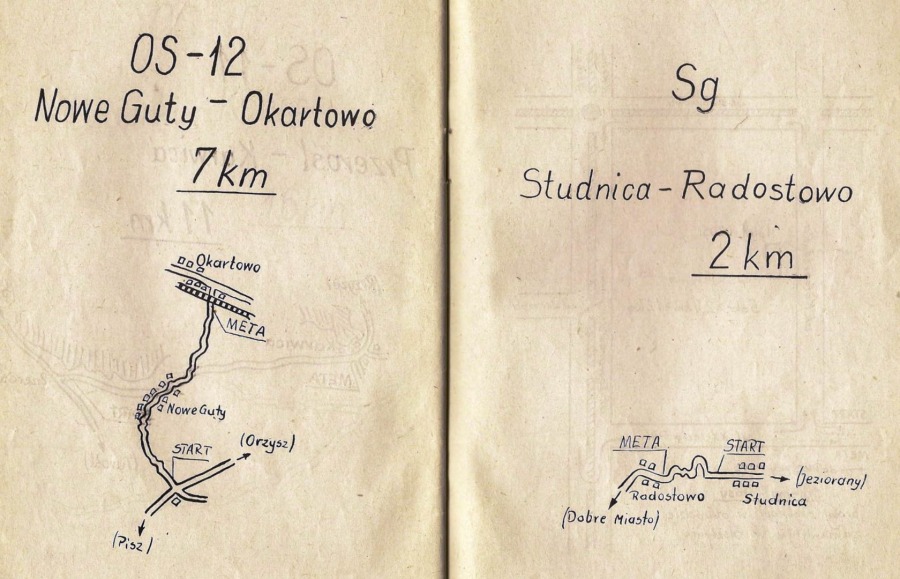 OS-12
Nowe Guty - Okartowo
7 km
Okartowo
META
Nowe Guty
START
(Orzysz)
(Pisz)
Sg
Studnica - Radostowo
2 km
META
START
Radostowo
Studnica
(Jeziorany)
(Dobre Miasto)